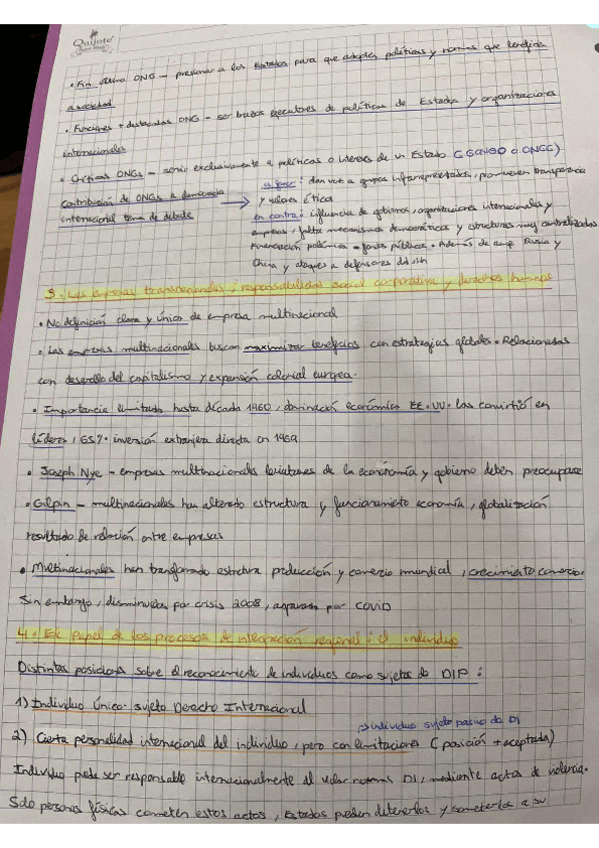 Quijote
• Fin último ONG – presionar a los Estados para que adopten políticas y normas que beneficien
a sociedad
• Funciones + destacadas ONG – ser brazos ejecutores de políticas de Estados y organizaciones
internacionales
• Críticas ONGs – servir exclusivamente a políticas o intereses de un Estado (GONGO o ONGG)
Contribución de ONGs a democracia
internacional tema de debate
a favor: dan voz a grupos infrarrepresentados, promueven transparencia
y valores éticos
en contra: influencia de gobiernos, organizaciones internacionales y
empresas, falta mecanismos democráticos y estructuras muy centralizadas
Financiación polémica = fondos públicos. Además de Rusia y
China y ataques a defensores ddhh
3. Las empresas transnacionales: responsabilidad social corporativa y derechos humanos
• No definición clara y única de empresa multinacional
• Las empresas multinacionales buscan maximizar beneficios con estrategias globales. Relacionadas
con desarrollo del capitalismo y expansión colonial europea.
• Importancia limitada hasta década 1960, dominación económica EE.UU. las convirtió en
líderes, 65% inversión extranjera directa en 1969
• Joseph Nye – empresas multinacionales de la economía y gobierno deben preocuparse
• Gilpin – multinacionales han alterado estructura y funcionamiento economía, globalización
resultado de relación entre empresas
• Multinacionales han transformado estructura producción y comercio mundial, crecimiento comercio.
Sin embargo, disminuidas por crisis 2008, agravada por COVID
4. El papel de los procesos de integración regional: el individuo
Distintas posiciones sobre el reconocimiento de individuos como sujetos de DIP:
1) Individuo Único: sujeto Derecho Internacional
→ individuo sujeto pasivo da DI
2) Cierta personalidad internacional del individuo, pero con limitaciones (posición + aceptada)
Individuo puede ser responsable internacionalmente al violar normas DI, mediante actos de violencia.
Solo personas físicas cometen estos actos, Estados pueden detenerlos y someterlos a su